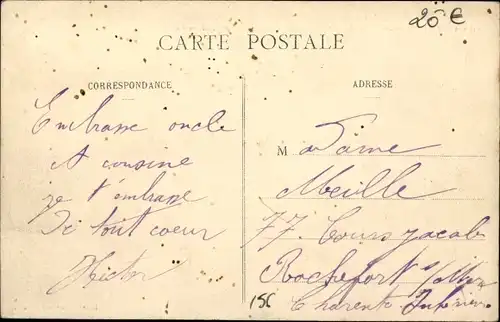 20 €
CARTE POSTALE
CORRESPONDANCE
ADRESSE
Embrasse oncle
et cousine
je t'embrasse
De tout coeur
Madame
Meille
77 Cours Jacob
Rochefort s/Mer
Charente Inférieure
15C